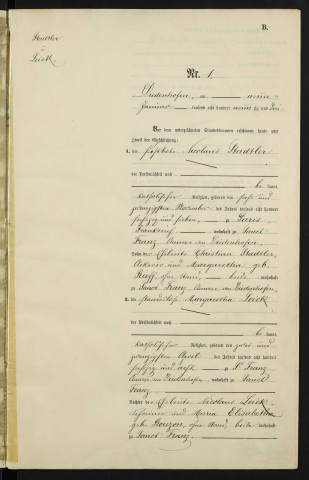 Stadtler
u.
Loick
B.
Nr. 1.
Diedenhofen, am neun
Januar tausend acht hundert neunzig und drei
Vor dem unterzeichneten Standesbeamten erschienen heute, zum
Zweck der Eheschließung:
1. der Nicolaus Stadtler
der Persönlichkeit nach
be kannt,
katholischer Religion, geboren den fünf und
zwanzigsten November des Jahres tausend acht hundert
sechszig und sieben, zu Paris
Frankreich, wohnhaft zu Sanct
Franz Canner, Diedenhofen
Sohn der Eheleute Christian Stadtler,
Ackerer und Margaretha, geb.
Ruff, ohne Stand, beide wohnhaft
zu Sanct Franz Canner, Diedenhofen,
2. die standeslose Margaretha Loick
der Persönlichkeit nach
be kannt,
katholischer Religion, geboren den zwei und
zwanzigsten April des Jahres tausend acht hundert
sechszig und acht, zu St. Franz
Canner, Diedenhofen, wohnhaft zu Sanct
Franz,
Tochter der Eheleute Nicolaus Loick
Schreiner und Maria Elisabetha
geb. Bouzon, ohne Stand, beide wohnhaft
zu Sanct Franz.